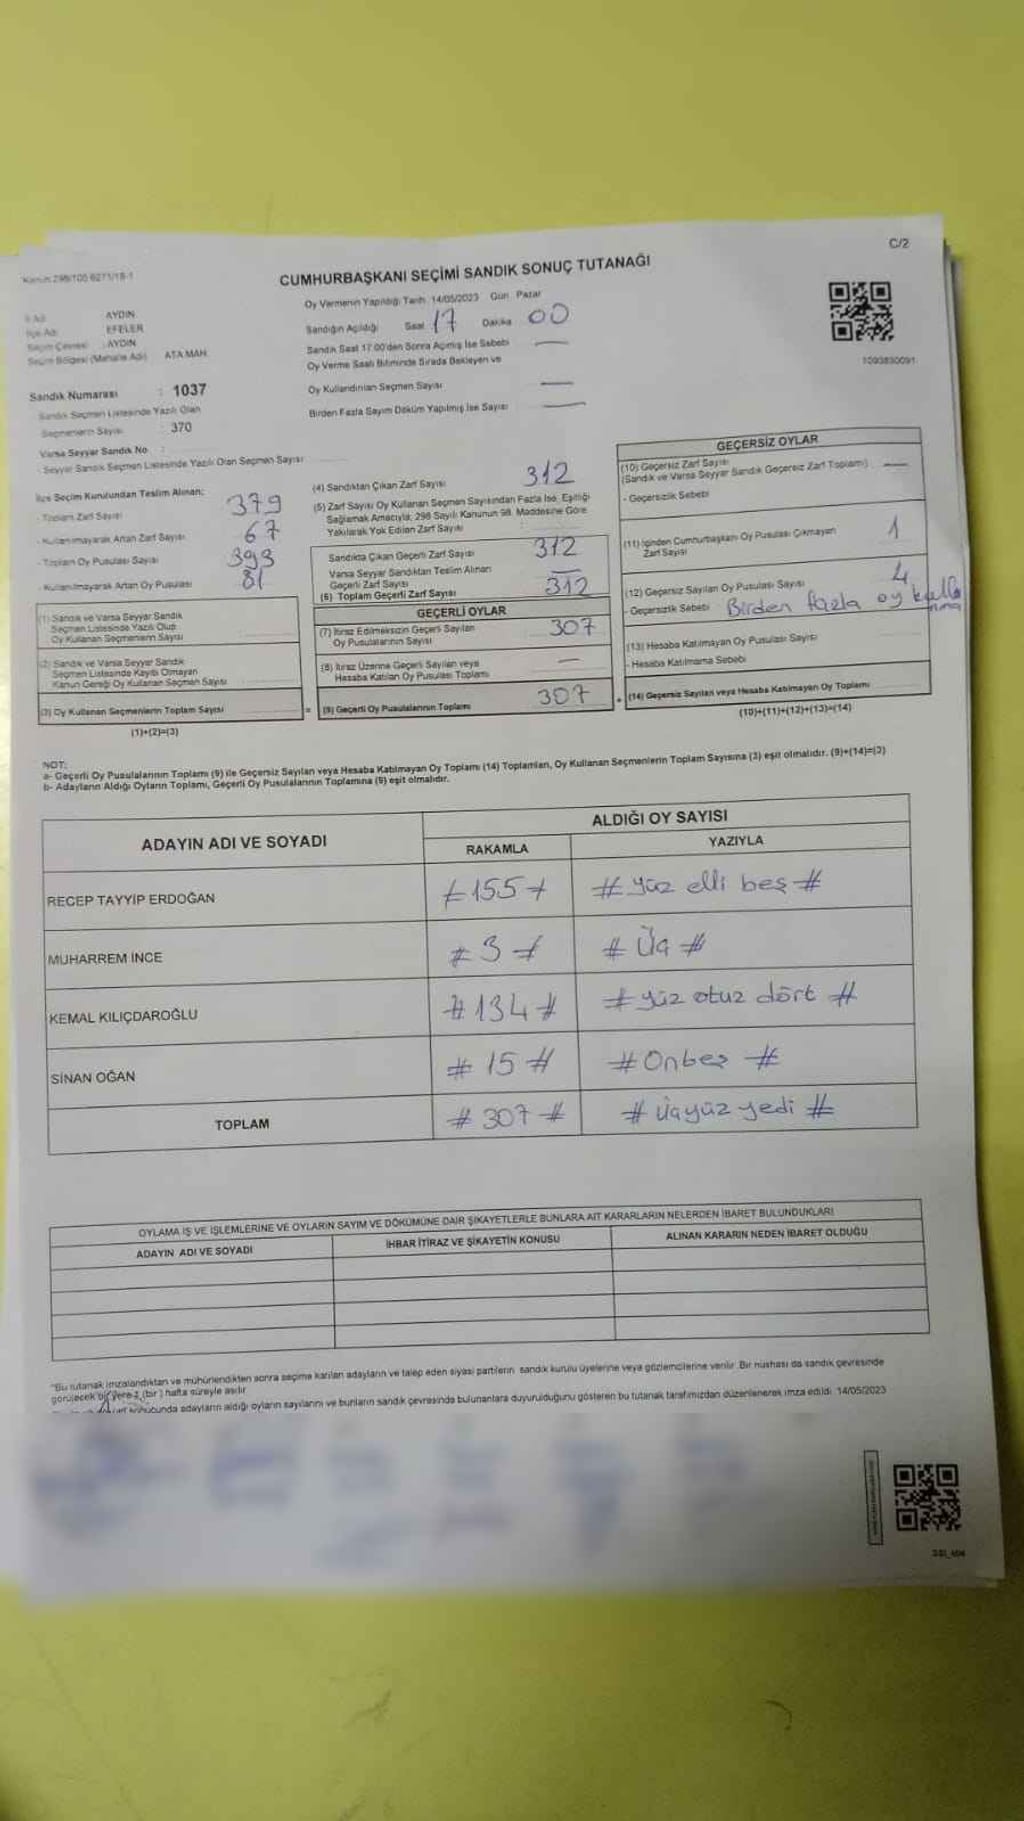 C/2
Kanun:298/105 6271/18-1
CUMHURBAŞKANI SEÇİMİ SANDIK SONUÇ TUTANAĞI
İl Adı : AYDIN
İlçe Adı : EFELER
Seçim Çevresi : AYDIN
Seçim Bölgesi (Mahalle Adı) : ATA MAH.
Sandık Numarası : 1037
Sandık Seçmen Listesinde Yazılı Olan
Seçmenlerin Sayısı : 370
Varsa Seyyar Sandık No :
- Seyyar Sandık Seçmen Listesinde Yazılı Olan Seçmen Sayısı
Oy Vermenin Yapıldığı Tarih: 14/05/2023 Gün: Pazar
Sandığın Açıldığı Saat 17 Dakika 00
Sandık Saat 17:00'den Sonra Açılmış İse Sebebi —
Oy Verme Saati Bitiminde Sırada Bekleyen ve
Oy Kullandırılan Seçmen Sayısı —
Birden Fazla Sayım Döküm Yapılmış İse Sayısı —
1093830091
İlçe Seçim Kurulundan Teslim Alınan:
- Toplam Zarf Sayısı 379
- Kullanılmayarak Artan Zarf Sayısı 67
- Toplam Oy Pusulası Sayısı 393
- Kullanılmayarak Artan Oy Pusulası 81
(1) Sandık ve Varsa Seyyar Sandık
Seçmen Listesinde Yazılı Olup
Oy Kullanan Seçmenlerin Sayısı
(2) Sandık ve Varsa Seyyar Sandık
Seçmen Listesinde Kayıtlı Olmayan
Kanun Gereği Oy Kullanan Seçmen Sayısı
(3) Oy Kullanan Seçmenlerin Toplam Sayısı
(1)+(2)=(3)
(4) Sandıktan Çıkan Zarf Sayısı 312
(5) Zarf Sayısı Oy Kullanan Seçmen Sayısından Fazla İse, Eşitliği
Sağlamak Amacıyla; 298 Sayılı Kanunun 98. Maddesine Göre
Yakılarak Yok Edilen Zarf Sayısı
Sandıkta Çıkan Geçerli Zarf Sayısı 312
Varsa Seyyar Sandıktan Teslim Alınan
Geçerli Zarf Sayısı —
(6) Toplam Geçerli Zarf Sayısı 312
GEÇERLİ OYLAR
(7) İtiraz Edilmeksizin Geçerli Sayılan
Oy Pusulalarının Sayısı 307
(8) İtiraz Üzerine Geçerli Sayılan veya
Hesaba Katılan Oy Pusulası Toplamı —
= (9) Geçerli Oy Pusulalarının Toplamı 307
GEÇERSİZ OYLAR
(10) Geçersiz Zarf Sayısı
(Sandık ve Varsa Seyyar Sandık Geçersiz Zarf Toplamı) —
- Geçersizlik Sebebi
(11) İçinden Cumhurbaşkanı Oy Pusulası Çıkmayan
Zarf Sayısı 1
(12) Geçersiz Sayılan Oy Pusulası Sayısı 4
- Geçersizlik Sebebi Birden fazla oy kulla
nma
(13) Hesaba Katılmayan Oy Pusulası Sayısı
- Hesaba Katılmama Sebebi
+ (14) Geçersiz Sayılan veya Hesaba Katılmayan Oy Toplamı
(10)+(11)+(12)+(13)=(14)
NOT:
a- Geçerli Oy Pusulalarının Toplamı (9) ile Geçersiz Sayılan veya Hesaba Katılmayan Oy Toplamı (14) Toplamları, Oy Kullanan Seçmenlerin Toplam Sayısına (3) eşit olmalıdır. (9)+(14)=(3)
b- Adayların Aldığı Oyların Toplamı, Geçerli Oy Pusulalarının Toplamına (9) eşit olmalıdır.
ADAYIN ADI VE SOYADI
ALDIĞI OY SAYISI
RAKAMLA YAZIYLA
RECEP TAYYİP ERDOĞAN # 155 # # Yüz elli beş #
MUHARREM İNCE # 3 # # Üç #
KEMAL KILIÇDAROĞLU # 134 # # yüz otuz dört #
SİNAN OĞAN # 15 # # Onbeş #
TOPLAM # 307 # # Üçyüz yedi #
OYLAMA İŞ VE İŞLEMLERİNE VE OYLARIN SAYIM VE DÖKÜMÜNE DAİR ŞİKAYETLERLE BUNLARA AİT KARARLARIN NELERDEN İBARET BULUNDUKLARI
ADAYIN ADI VE SOYADI İHBAR İTİRAZ VE ŞİKAYETİN KONUSU ALINAN KARARIN NEDEN İBARET OLDUĞU
"Bu tutanak imzalandıktan ve mühürlendikten sonra seçime katılan adayların ve talep eden siyasi partilerin sandık kurulu üyelerine veya gözlemcilerine verilir. Bir nüshası da sandık çevresinde
görülecek bir yere 1 (bir) hafta süreyle asılır.
sonucunda adayların aldığı oyların sayılarını ve bunların sandık çevresinde bulunanlara duyurulduğunu gösteren bu tutanak tarafımızdan düzenlenerek imza edildi. 14/05/2023